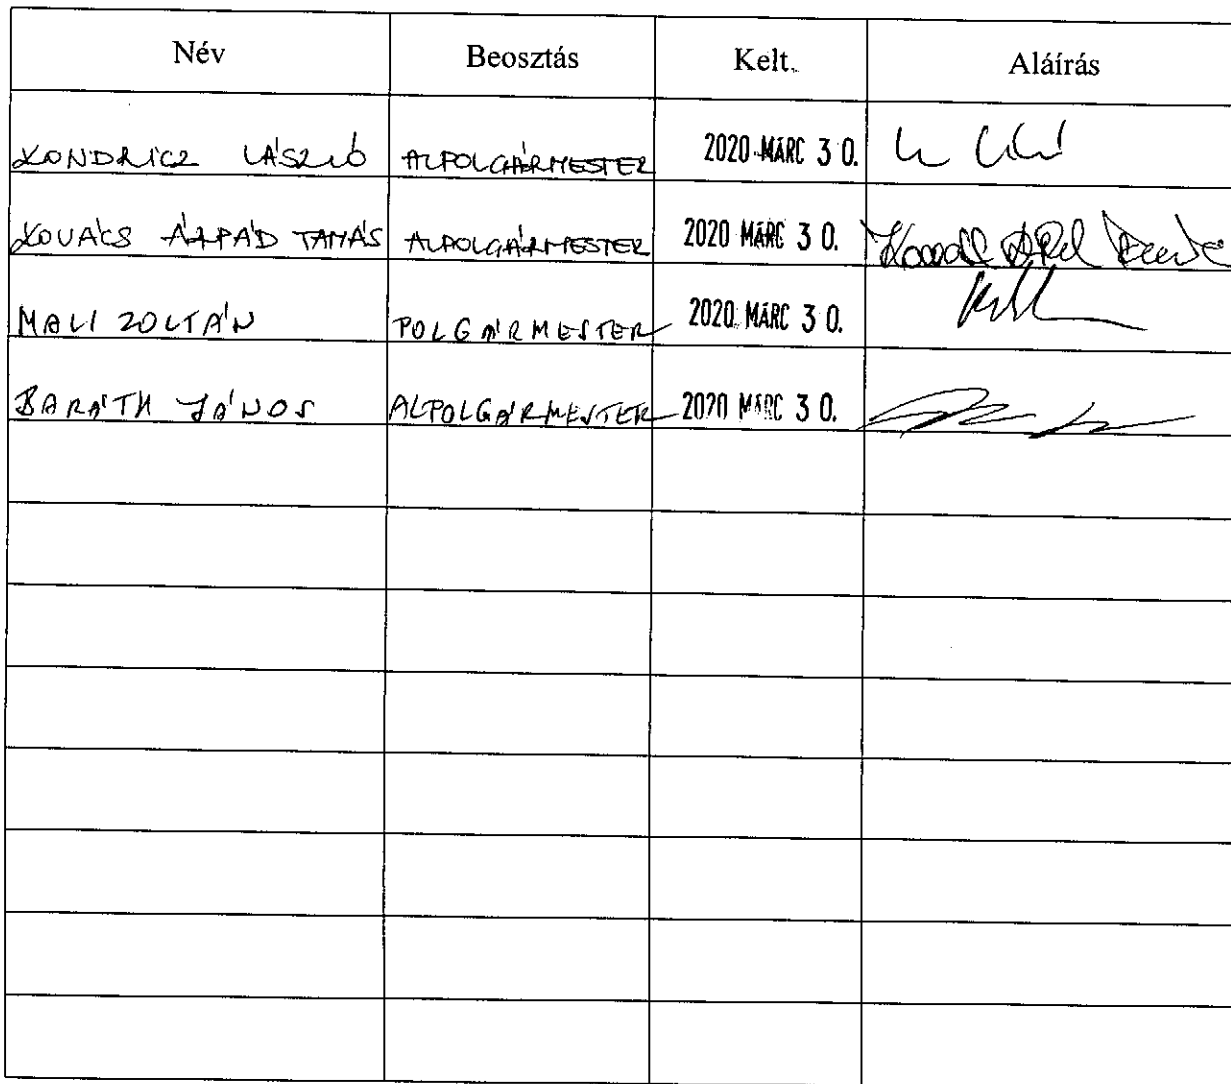 Név Beosztás Kelt. Aláírás
KONDRICZ LÁSZLÓ ALPOLGÁRMESTER 2020 MÁRC 3 0.
KOVÁCS ÁRPÁD TAMÁS ALPOLGÁRMESTER 2020 MÁRC 3 0.
MALI ZOLTÁN POLGÁRMESTER 2020 MÁRC 3 0.
BARÁTH JÁNOS ALPOLGÁRMESTER 2020 MÁRC 3 0.